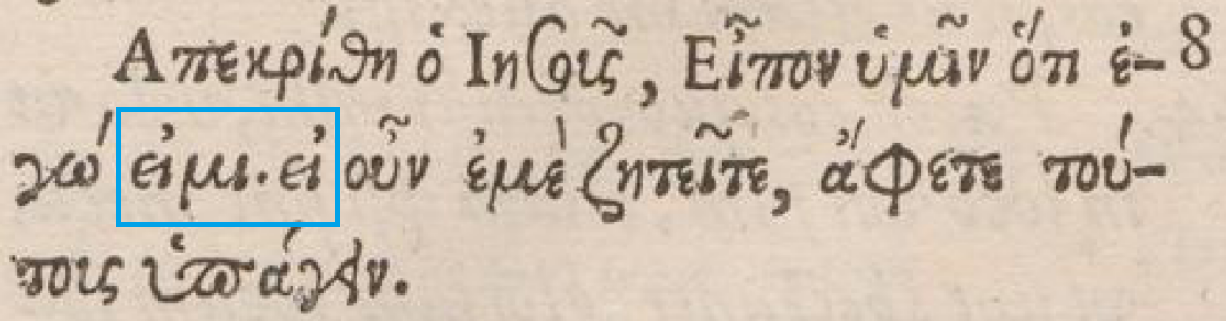 Απεκρίθη ὁ Ιησοῦς, Εἶπον ὑμῖν ὅτι ἐ- 8
γώ εἰμι. εἰ οὖν ἐμὲ ζητεῖτε, ἄφετε τού-
τοις ὑπάγειν.